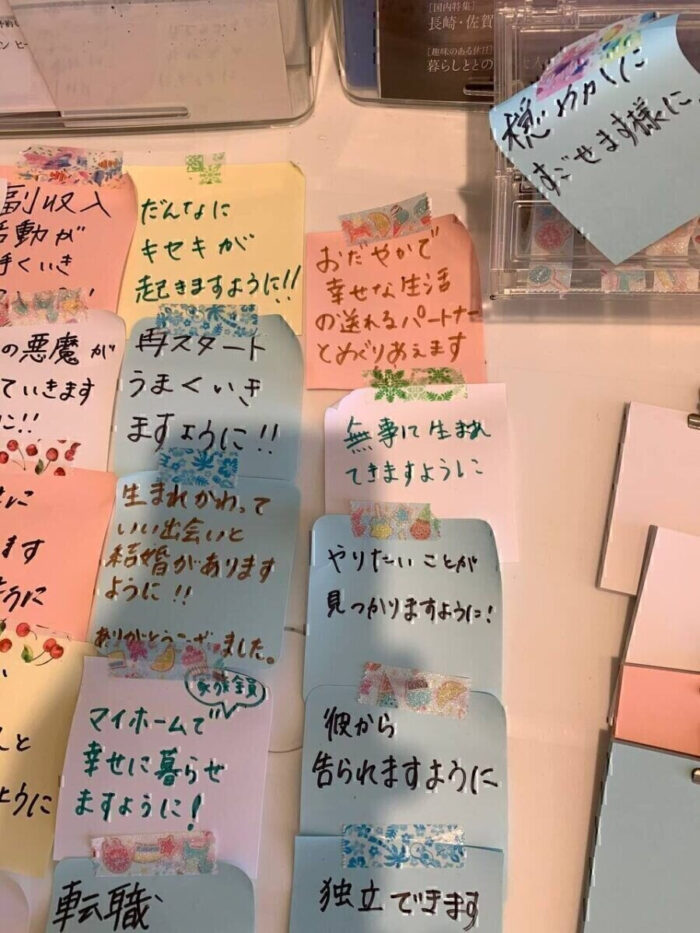 ［国内特集］
長崎・佐賀
［趣味のある休日］
暮らしととの
穏やかに
すごせます様に
副収入
活動が
手くいき
だんなに
キセキが
起きますように!!
おだやかで
幸せな生活
の送れるパートナー
とめぐりあえます
の悪魔が
ていきます
に!!
再スタート
うまくいき
ますように!!
無事に生まれ
てきますように
ます
うに
生まれかわって
いい出会いと
結婚があります
ように!!
ありがとうございました。
やりたいことが
見つかりますように!
家族全員
マイホームで
幸せに暮らせ
ますように!
彼から
告られますように
と
ように
転職
独立できます